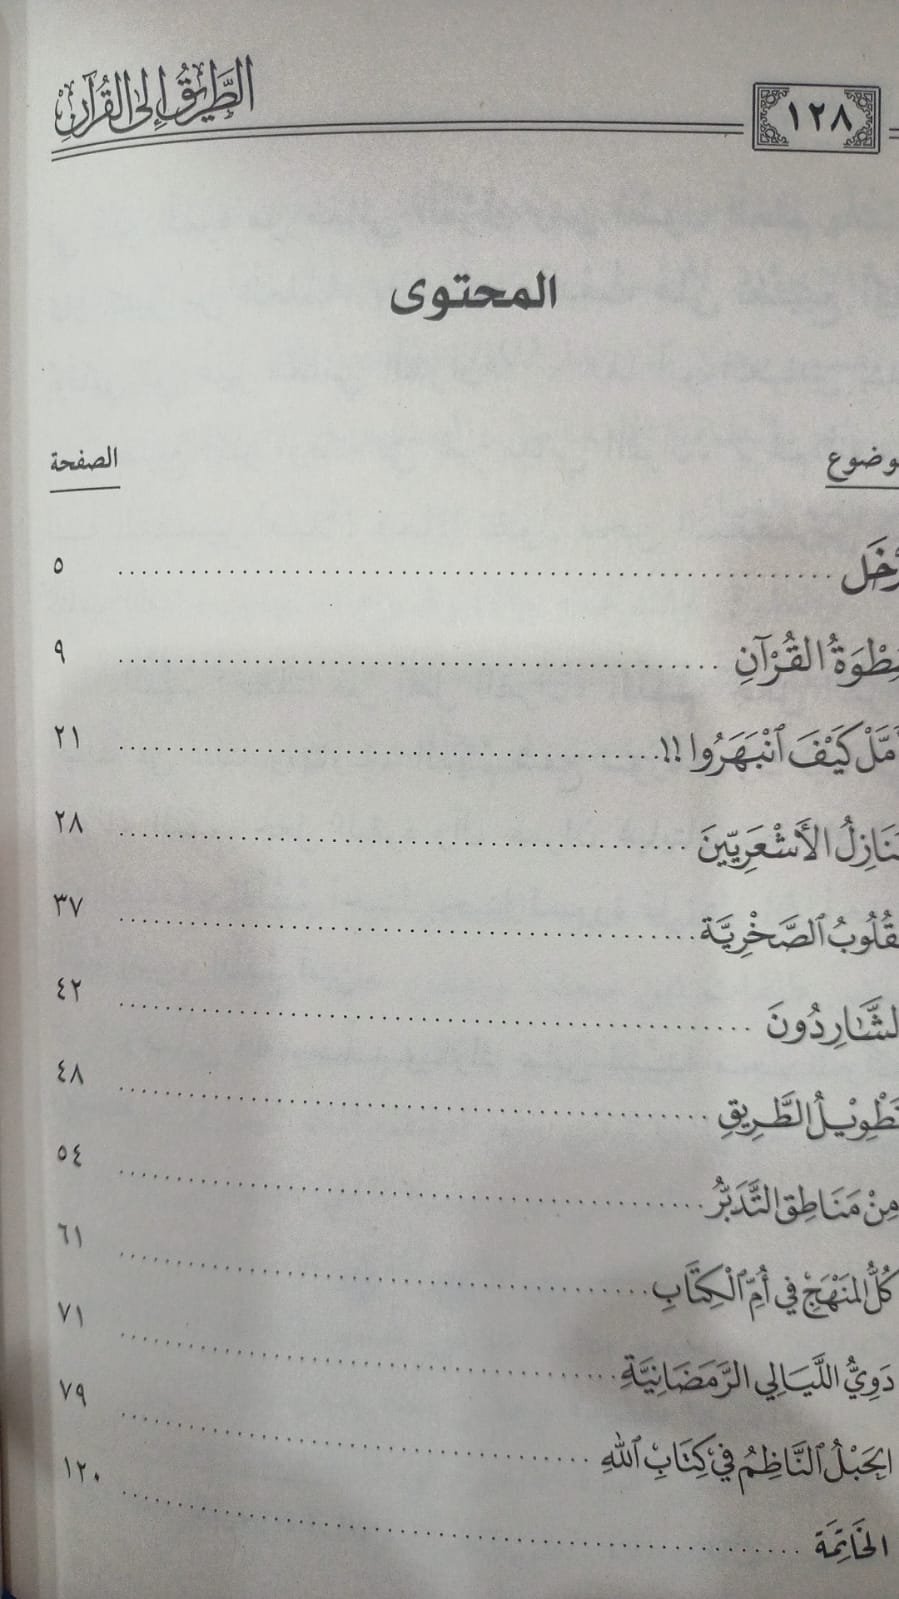 ١٢٨ الطَّرِيقُ إِلَى القُرْآنِ
المحتوى
الصفحة
٥
سَطْوَةُ القُرْآنِ ٩
تَأَمَّلْ كَيْفَ ٱنْبَهَرُوا !! ٢١
مَنَازِلُ الأَشْعَرِيِّينَ ٢٨
القُلُوبُ ٱلصَّخْرِيَّة ٣٧
الشَّارِدُونَ ٤٢
تَطْوِيْلُ الطَّرِيقِ ٤٨
مِنْ مَنَاطِقِ التَّدَبُّرِ ٥٤
كُلُّ المَنْهَجِ فِي أُمِّ ٱلْكِتَابِ ٦١
دَوِيُّ اللَّيَالِي الرَّمَضَانِيَّةِ ٧١
الحَبْلُ ٱلنَّاظِمُ فِي كِتَابِ ٱللهِ ٧٩
الخَاتِمَة ١٢٠